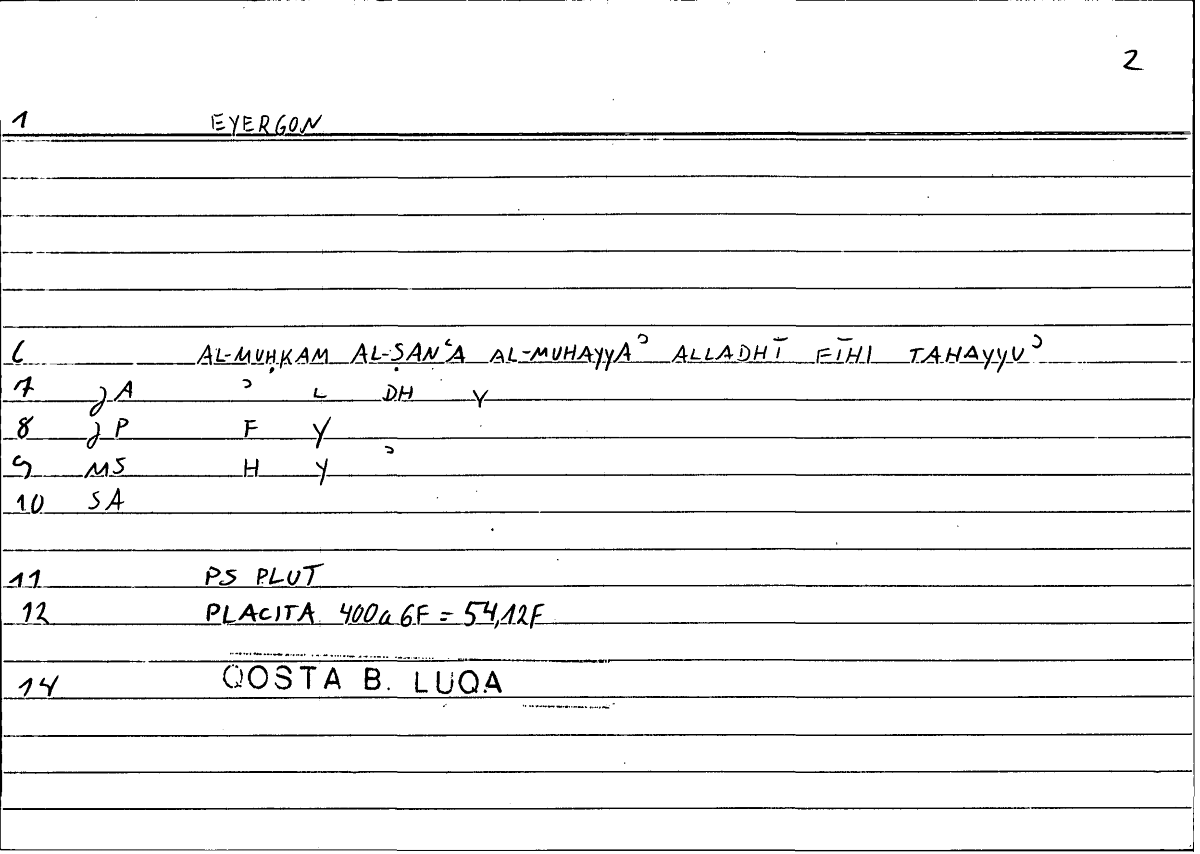 2
1 EYERGON
6 AL-MUḤKAM AL-ṢANʿA AL-MUHAYYAʾ ALLADHĪ FĪHI TAHAYYUʾ
7 JA ʾ L DH Y
8 JP F Y
9 MS H Y ʾ
10 SA
11 PS PLUT
12 PLACITA 400a 6F = 54,12F
14 QOSTA B. LUQA